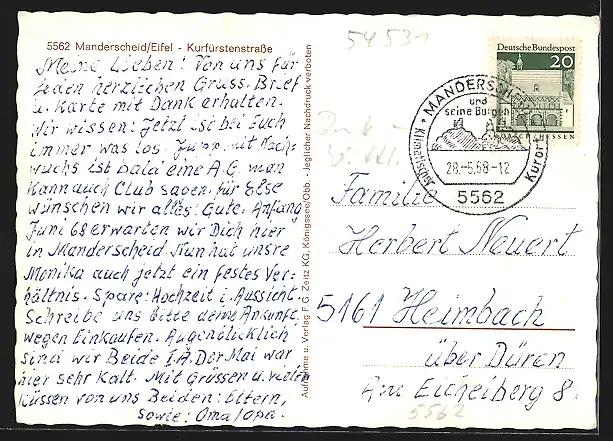 5562 Manderscheid/Eifel - Kurfürstenstraße
Meine Lieben: Von uns für
jeden herzlichen Gruss. Brief
u. Karte mit Dank erhalten.
Wir wissen: Jetzt ist bei Euch
immer was los. Jupp mit Nach-
wuchs ist bald eine A.G. man
kann auch Club sagen. für Else
wünschen wir alles: Gute. Anfang
Juni 68 erwarten wir Dich hier
in Manderscheid. Nun hat unsre
Monika auch jetzt ein festes Ver-
hältnis. Spare: Hochzeit i. Aussicht.
Schreibe uns bitte deine Ankunft.
wegen Einkaufen. Augenblicklich
sind wir Beide i.A. Der Mai war
hier sehr Kalt. Mit Grüssen u. vielen
Küssen von uns Beiden: Eltern,
sowie: Oma/Opa.
Aufnahme u. Verlag F. G. Zeitz KG, Königssee/Obb. · Jeglicher Nachdruck verboten
54531
Deutsche Bundespost
20
LORSCH/HESSEN
MANDERSCHEID
und
seine Burgen
28.-5.68-12
5562
Kurort
Familie
Herbert Neuert
5161 Heimbach
über Düren
Am Eichelberg 8.
5562